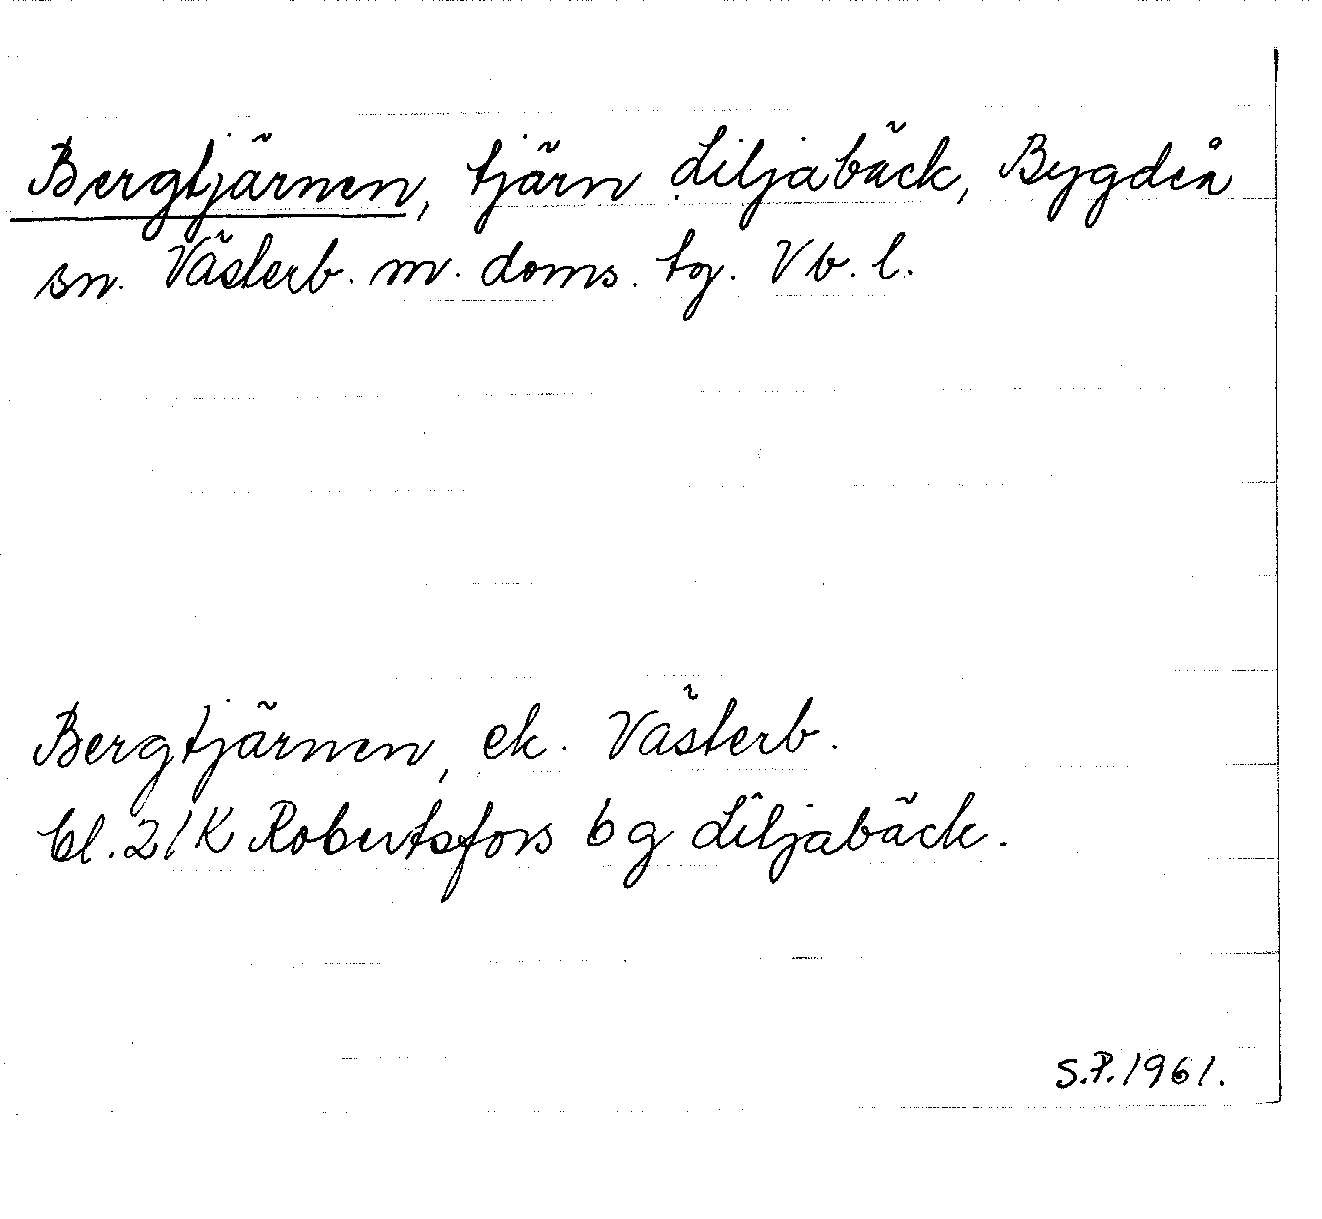 Bergtjärnen, tjärn Liljabäck, Bygdeå
sn. Västerb. m. doms. tg. Vb. l.
Bergtjärnen, ek. Västerb.
bl. 21K Robertsfors bg Liljabäck.
S.P. 1961.